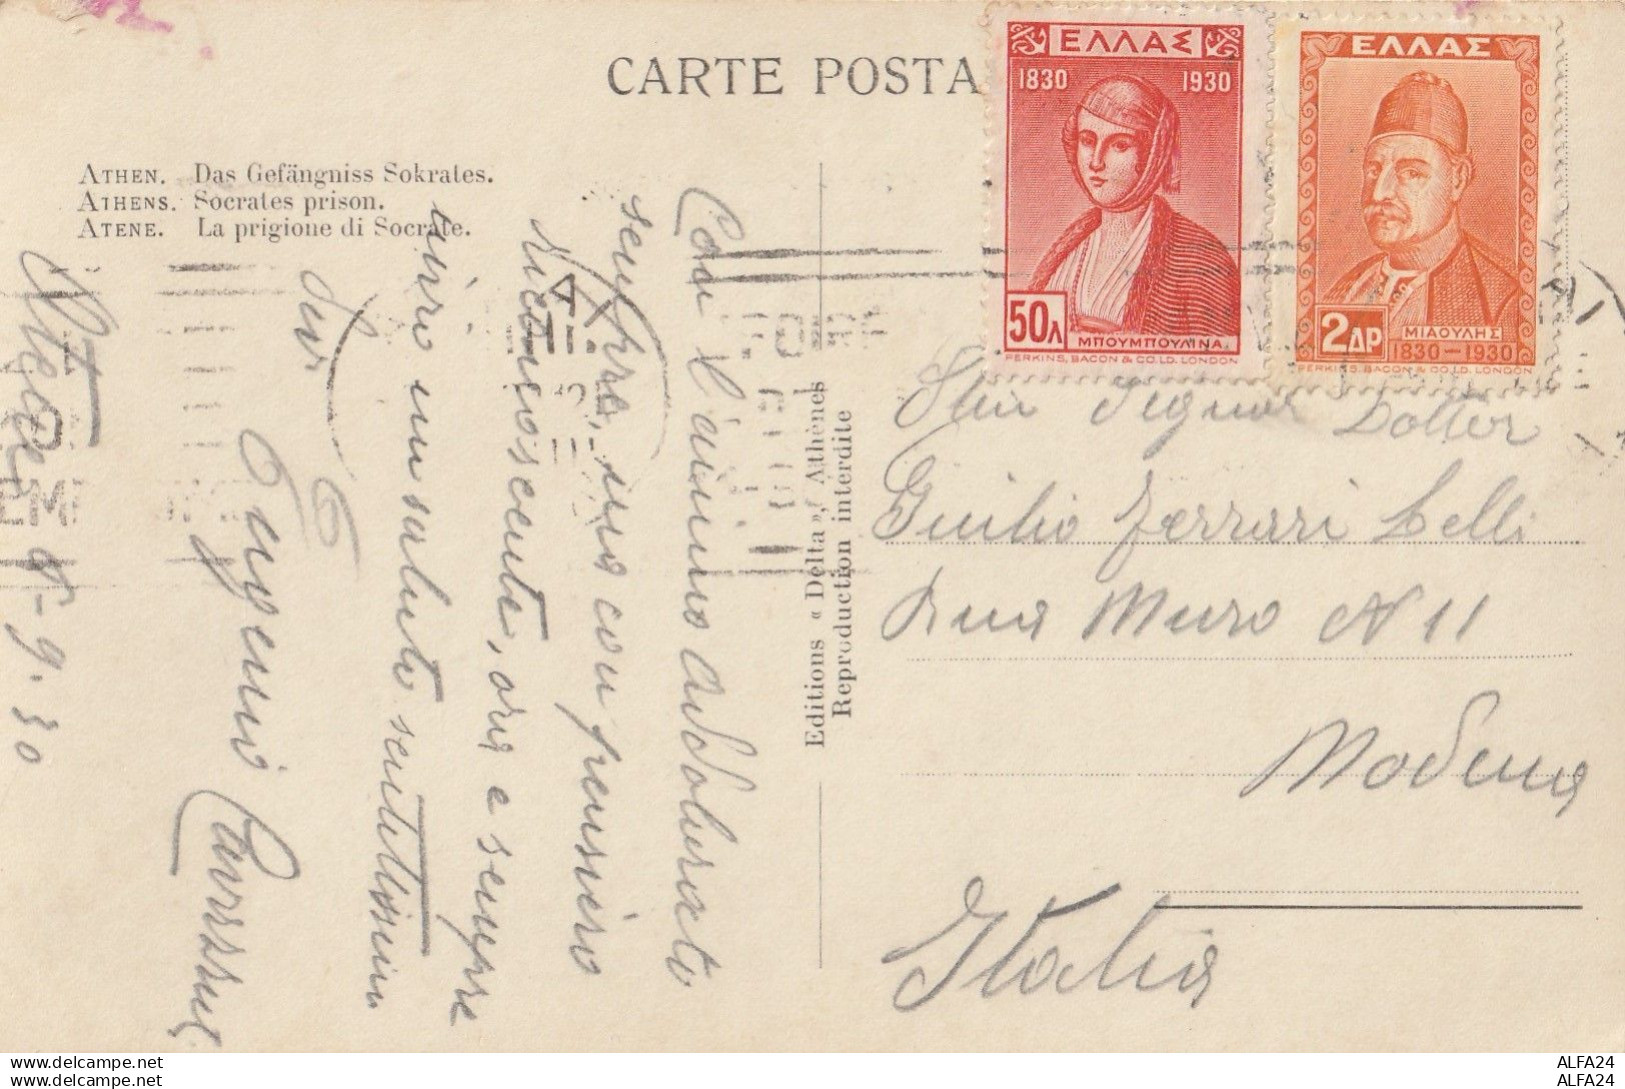 CARTE POSTA
ΕΛΛΑΣ
1830 1930
50Λ
ΜΠΟΥΜΠΟΥΛΙΝΑ
PERKINS, BACON & CO. LD. LONDON
ΕΛΛΑΣ
2ΔΡ
ΜΙΑΟΥΛΗΣ
1830-1930
PERKINS, BACON & CO. LD. LONDON
ATHEN. Das Gefängniss Sokrates.
ATHENS. Socrates prison.
ATENE. La prigione di Socrate.
Editions « Delta », Athènes
Reproduction interdite
Con l'animo addolorato
sempre, ma con pensiero
riconoscente, ora e sempre
un saluto
Eugenio
Atene 8-9.30
Signor Dottor
Giulio Ferrari Belli
Rua Muro N 11
Modena
Italia
delcampe.net
ALFA24
delcampe.net
ALFA24